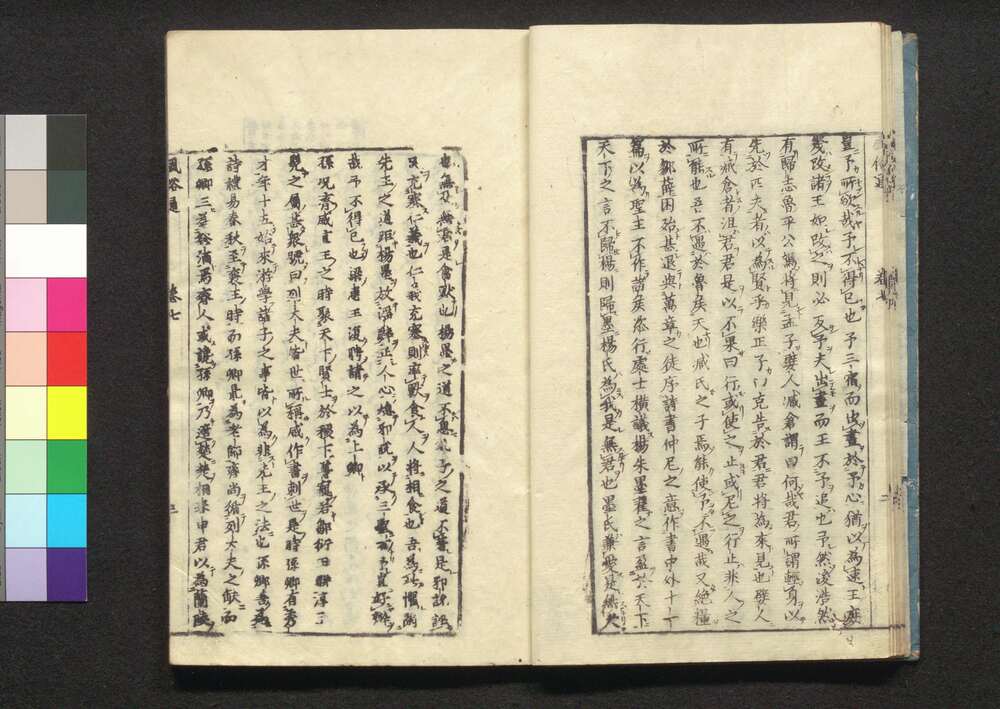 豈予所欲哉予不得已也予三宿而出晝於予心猶以為速王庶
幾改諸王如改之則必反予夫出晝而王不予追也予然後浩然
有歸志魯平公駕將見孟子嬖人臧倉謂曰何哉君所謂輕身以
先於匹夫者以為賢乎樂正子曰克告於君君將為來見也嬖人
有臧倉者沮君君是以不果曰行或使之止或尼之行止非人之
所能也吾不遇於魯矣天也臧氏之子焉能使予不遇哉又絕糧
於鄒薛困殆甚退與萬章之徒序詩書仲尼之意作書中外十一
篇以為聖王不作諸侯恣行處士橫議楊朱墨翟之言盈於天下
天下之言不歸楊則歸墨楊氏為我是無君也墨氏兼愛是無父
也無父無君是禽獸也楊墨之道不息孔子之道不著是邪說誣
民充塞仁義也仁義充塞則率獸食人人將相食也吾為此懼閑
先王之道距楊墨放淫辭正人心熄邪說以承三聖予豈好辯
哉予不得已也梁惠王復聘請之以為上卿
孫況齊威宣王之時聚天下賢士於稷下尊寵若鄒衍田駢淳于
髡之屬甚眾號曰列大夫皆世所稱咸作書刺世是時孫卿有秀
才年十五始來游學諸子之事皆以為非先王之法也孫卿善為
詩禮易春秋至襄王時而孫卿最為老師齊尚循列大夫之缺而
孫卿三為祭酒焉齊人或讒孫卿乃適楚楚相春申君以為蘭陵
風俗通 卷七 三